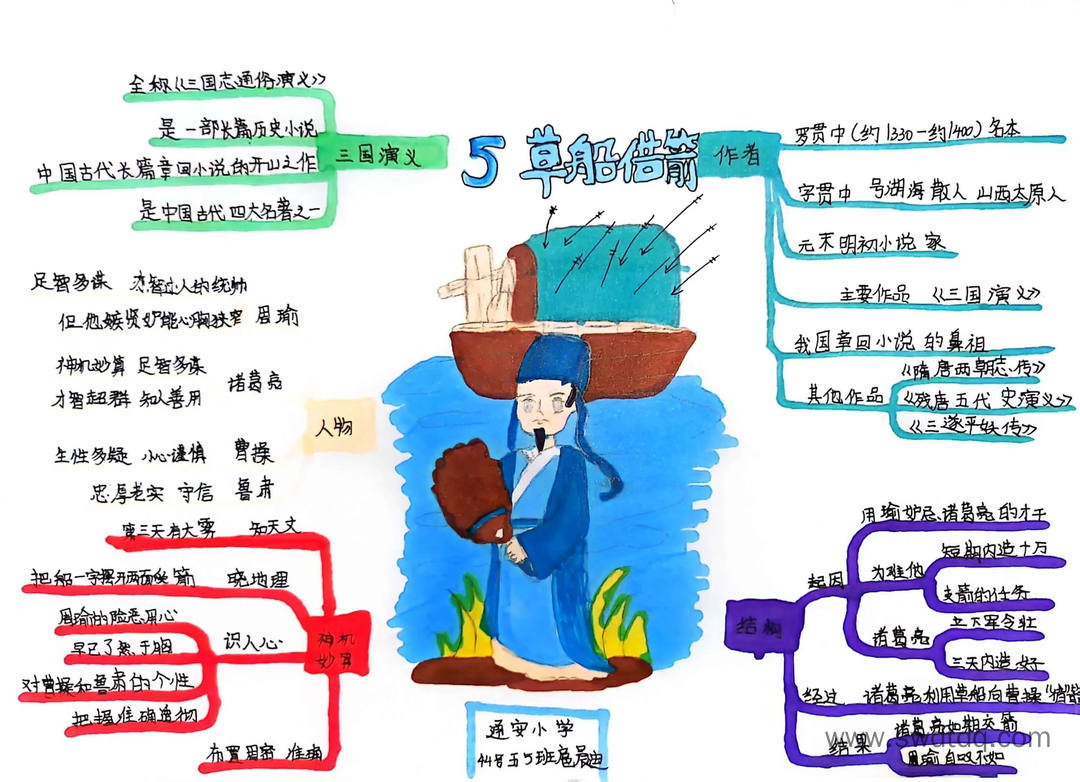 5 草船借箭
三国演义
全称《三国志通俗演义》
是一部长篇历史小说
中国古代长篇章回小说的开山之作
是中国古代四大名著之一
作者
罗贯中(约1330-约1400)名本
字贯中 号湖海散人 山西太原人
元末明初小说家
主要作品 《三国演义》
我国章回小说的鼻祖
其他作品
《隋唐两朝志传》
《残唐五代史演义》
《三遂平妖传》
人物
足智多谋 才智过人的统帅
但他嫉贤妒能心胸狭窄 周瑜
神机妙算 足智多谋
才智超群 知人善用
诸葛亮
生性多疑 小心谨慎 曹操
忠厚老实 守信 鲁肃
神机
妙算
第三天有大雾 知天文
把船一字摆开两面受箭 晓地理
识人心
周瑜的险恶用心
早已了然于胸
对曹操和鲁肃的个性
把握准确透彻
布置周密 准确
结构
起因
周瑜妒忌诸葛亮的才干
为难他
短期内造十万
支箭的任务
诸葛亮
立下军令壮
三天内造好
经过 诸葛亮利用草船向曹操"借箭
结果
诸葛亮如期交箭
周瑜自叹不如
通安小学
五5班
www.swdtdq.com